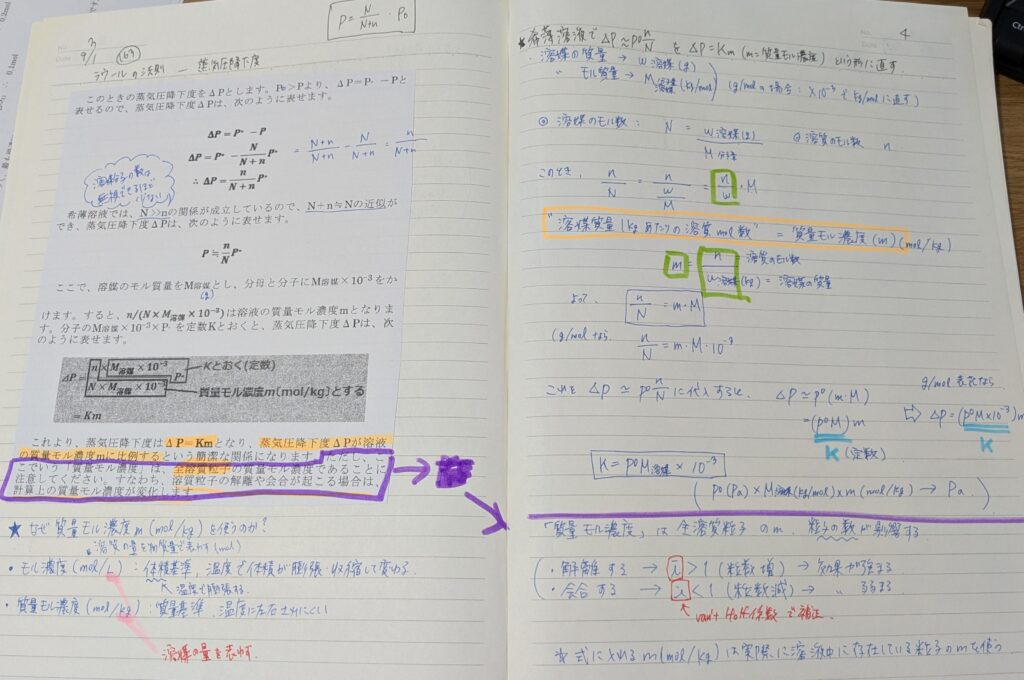 P = N/N+n ・ P₀
9/1
169
ラウールの法則 ― 蒸気圧降下度
このときの蒸気圧降下度をΔPとします。P₀＞Pより、ΔP=P・－Pと
表せるので、蒸気圧降下度ΔPは、次のように表せます。
ΔP = P・ － P
ΔP = P・ － N/N+n P・ = N+n/N+n － N/N+n = n/N+n
∴ ΔP = n/N+n P・
希薄溶液では、N>>nの関係が成立しているので、N+n≒Nの近似が
でき、蒸気圧降下度ΔPは、次のように表せます。
P ≒ n/N P・
ここで、溶媒のモル質量をM溶媒とし、分母と分子にM溶媒×10⁻³をか
(g)
けます。すると、n/(N×M溶媒×10⁻³)は溶液の質量モル濃度mとなりま
す。分子のM溶媒×10⁻³×P・を定数Kとおくと、蒸気圧降下度ΔPは、次
のように表せます。
ΔP = n×M溶媒×10⁻³/N×M溶媒×10⁻³ P・
Kとおく(定数)
質量モル濃度m[mol/kg]とする
= Km
これより、蒸気圧降下度はΔP=Kmとなり、蒸気圧降下度ΔPが溶液
の質量モル濃度mに比例するという簡潔な関係になります。ただし、こ
こでいう「質量モル濃度」は、全溶質粒子の質量モル濃度であることに
注意してください。すなわち、溶質粒子の解離や会合が起こる場合は、
計算上の質量モル濃度が変化します。
★ なぜ質量モル濃度m (mol/kg) を使うのか？
溶質の量を物質量で表わす(mol)
・モル濃度 (mol/L)：体積基準, 温度で体積が膨張・収縮して変わる。
温度で膨張する
・質量モル濃度 (mol/kg)：質量基準. 温度に左右されにくい
溶媒の量を表わす.
4
★希薄溶液で ΔP≈p⁰ n/N を ΔP=Km (m=質量モル濃度) という形に直す.
・溶媒の質量 → w溶媒(g)
〃 モル質量 → M溶媒(kg/mol) (g/molの場合：×10⁻³でkg/molに直す)
◎ 溶媒のモル数： N = w溶媒(g)/M溶媒 ◎溶質のモル数 n
このとき, n/N = n/w/M = n/w ・M
"溶媒質量1kgあたりの溶質mol数" = 質量モル濃度(m) (mol/kg)
m = n/w溶媒(kg)
溶質のモル数
= 溶媒の質量
よって, n/N = m・M
(g/molなら n/N = m・M・10⁻³
これを ΔP≃p⁰ n/N に代入すると, ΔP≃p⁰(m・M)
= (p⁰M)m
K (定数)
g/mol 表記なら
⇨ ΔP=(p⁰M×10⁻³)m
K
K = p⁰M溶媒 × 10⁻³
(p⁰(Pa)×M溶媒(kg/mol)×m(mol/kg) → Pa)
「質量モル濃度」は全溶質粒子のm. 粒子の数が影響する
・解離する → i>1 (粒数増) → 効果が強まる
・会合する → i<1 (粒数減) → 〃 弱まる
van't Hoff係数で補正.
☆式に入れるm(mol/kg)は実際に溶液中に存在している粒子のmを使う